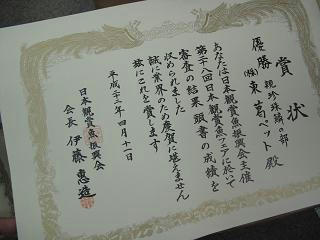 賞状
優勝 親珍珠鱗の部
(株)東葛ペット殿
あなたは日本観賞魚振興会主催
第二十八回日本観賞魚フェアに於いて
審査の結果頭書の成績を
収められました
誠に業界のため慶賀に堪えません
茲にこれを賞します
平成二十二年四月十一日
日本観賞魚振興会
会長 伊藤恵造